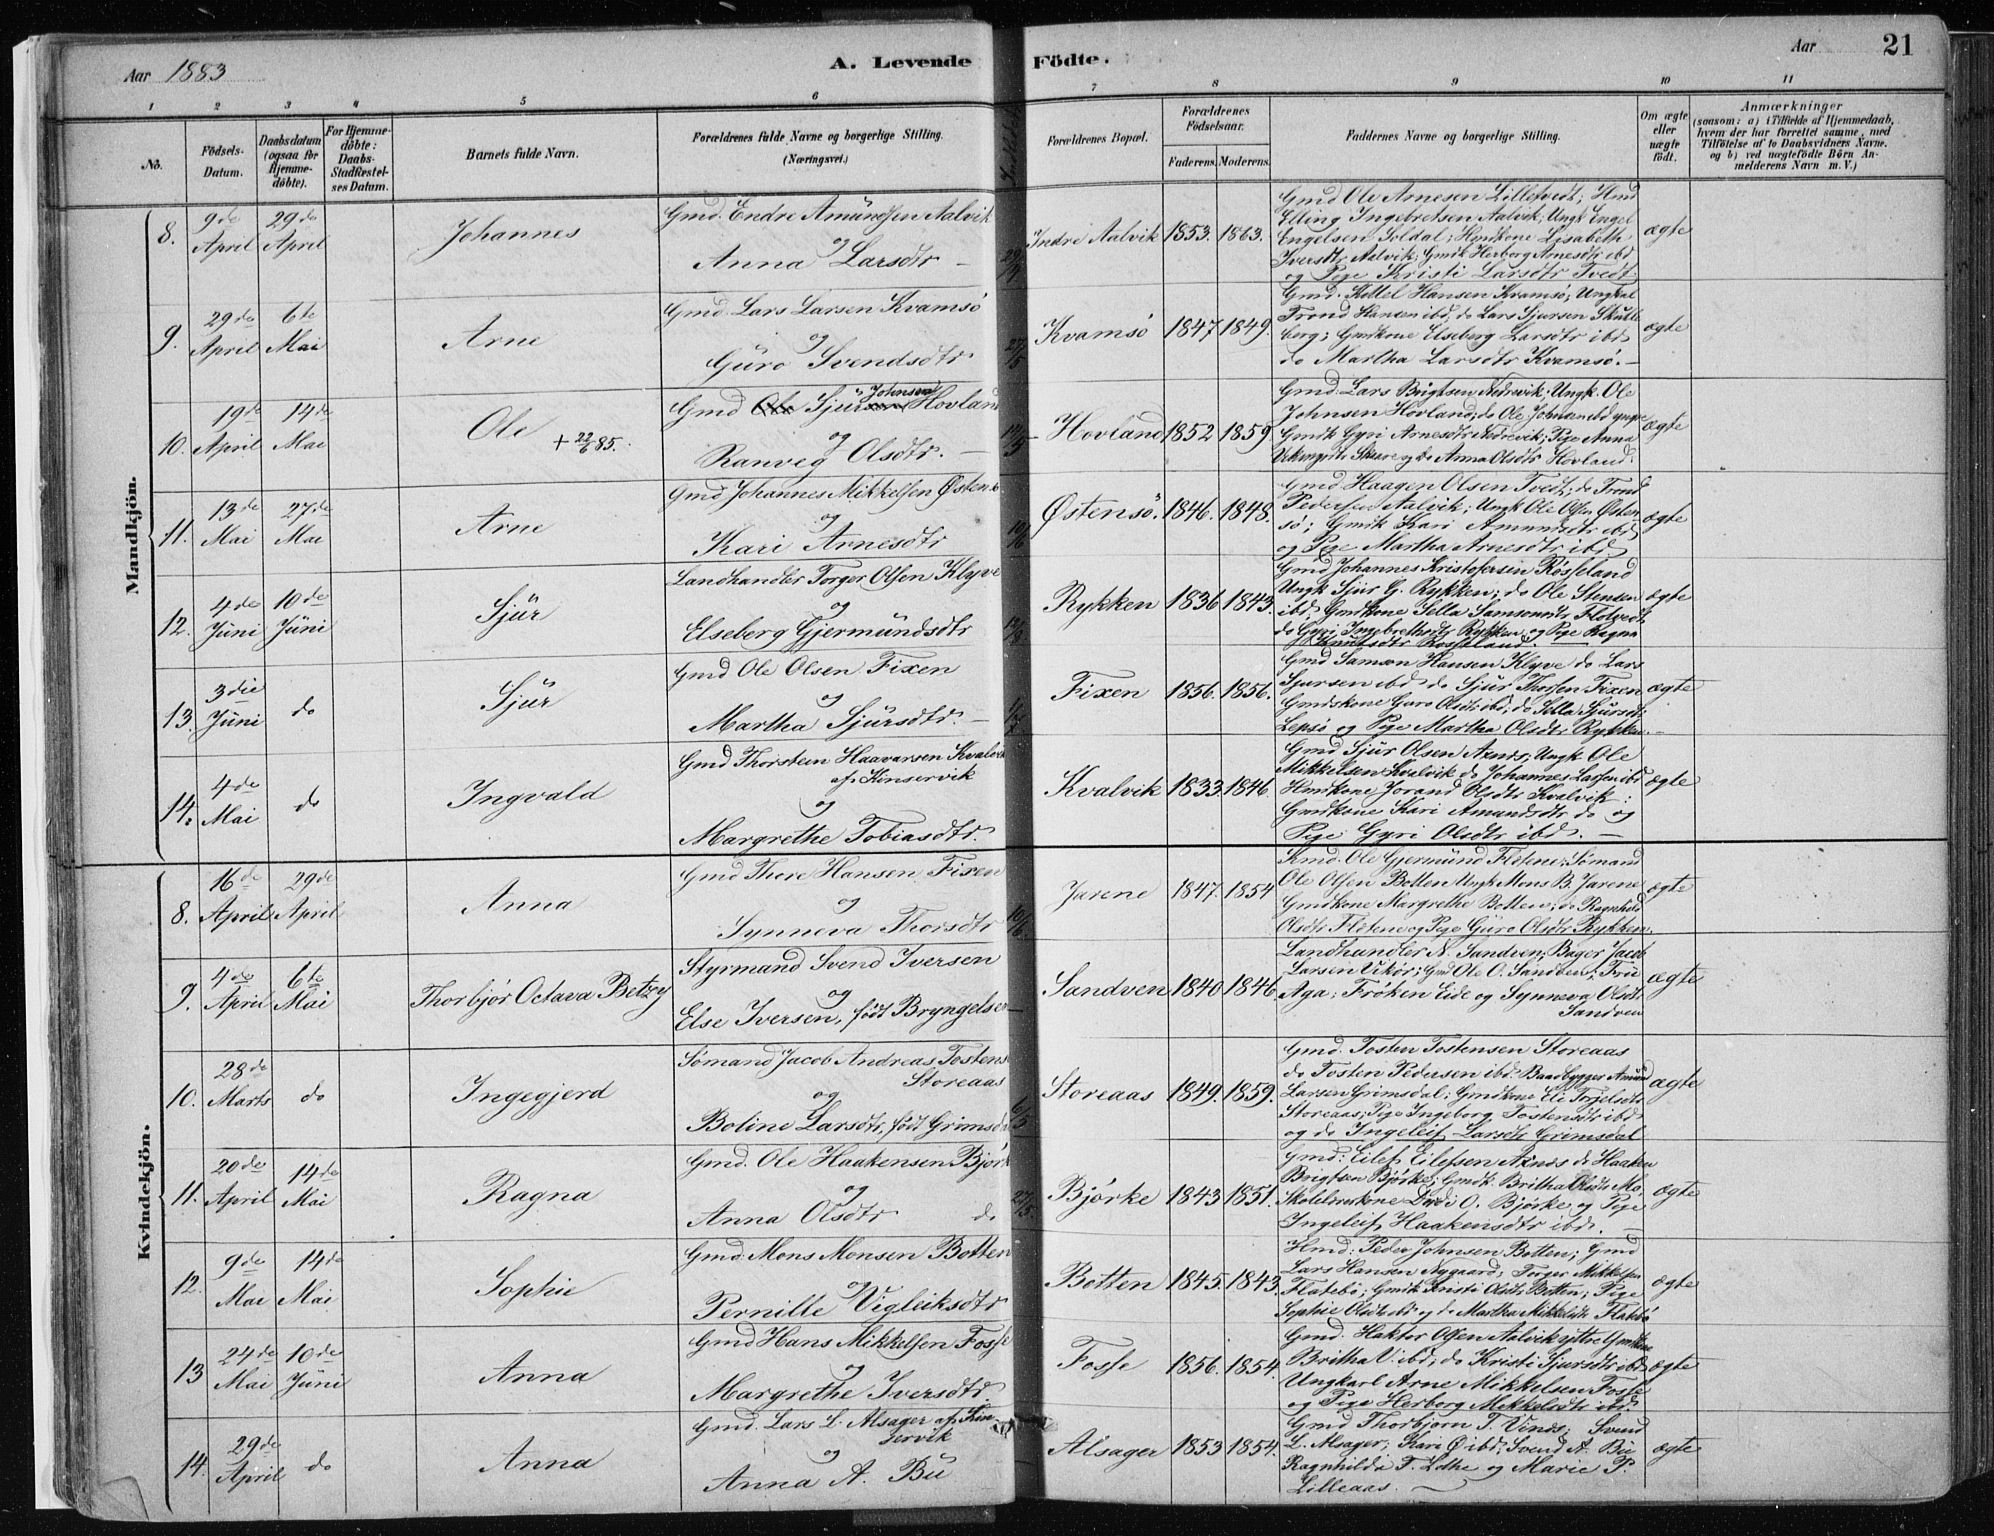 Aar 1883
A. Levende
Födte.
Aar
21
1
2
3
4
5
6
7
8
9
10
11
No.
Födsels-
Datum.
Daabsdatum
(ogsaa for
Hjemme-
döbte).
For Hjemme-
döbte:
Daabs-
Stadfæstel-
ses Datum.
Barnets fulde Navn.
Forældrenes fulde Navne og borgerlige Stilling.
(Næringsvei.)
Forældrenes Bopæl.
Forældrenes
Födselsaar.
Faderens.
Moderens.
Faddernes Navne og borgerlige Stilling.
Om ægte
eller
uægte
födt.
Anmærkninger
(saasom: a) i Tilfælde af Hjemmedaab,
hvem der har forrettet samme, med
Tilföielse af to Daabsvidners Navne.
og b) ved uægtefödte Börn An-
melderens Navn m. V.)
Mandkjön.
8.
9de April
29de April
Johannes
Gmd. Endre Amündsen Aalvik
og
Anna Larsdtr –
Indre Aalvik
1853.
1863.
Gmd Ole Arnesen Lilletvedt; Hmd
Elling Ingebretsen Aalvik; Ungk Engel
Engelsen Soldal; Hmdkone Lisabeth
Iversdtr Aalvik; Gmdk Herborg Arnesdtr ibd
og Pige Kristi Larsdtr Tvedt
ægte
9.
29de April
6te Mai
Arne
Gmd. Lars Larsen Kvamsö
og
Güro Svendsdtr
27/5
Kvamsö
1847
1849.
Gmd. Kittel Hansen Kvamsö; Ungkal
Trond Hansen ibd, do Lars Sjursen Skutle
berg; Gmdkone Elseberg Larsdtr ibd
do Martha Larsdtr Kvamsö. –
ægte
10.
19de April
14de Mai
Ole
+ 22/6 85.
Gmd Ole Sjür Johnsen Hovland
og
Ranveg Olsdtr. –
Hovland
1852
1859
Gmd. Lars Brigtsen Nedrevik; Ungk. Ole
Johnsen Hovland; do Ole Johnsen ibd yngre
Gmdk Gyri Arnesdtr Nedrevik; Pige Anna
Vikingsdtr Skaare og do Anna Olsdtr Hovland.
ægte
11.
13de Mai
27de Mai
Arne
Gmd Johannes Mikkelsen Østensö
og
Kari Arnesdtr
10/6
Østensö.
1846.
1848.
Gmd Haagen Olsen Tvedt; do Trond
Pedersen Aalvik; Ungk Ole Olsen Østen
sö; Gmdk Kari Amundsdtr ibd
og Pige Martha Arnesdtr ibd
ægte
12.
4de Jüni
10de Jüni
Sjür
Landhandler Torger Olsen Klyve
og
Elseberg Gjermündsdtr
Rykken
1836
1843.
Gmd Johannes Kristofersen Røsseland
Ungk Sjür G. Rykken; do Ole Stensen
ibd; Gmdkone Sella Samsonsdtr Flotvedt
do Gyri Ingebrethsdtr Rykken og Pige Ragna
Knudsdtr Rosseland.
ægte
13.
3die Jüni
do
Sjür
Gmd Ole Olsen Fixen
og
Martha Sjürsdtr. –
1/7
Fixen
1856.
1856.
Gmd Samson Hansen Klyve do Lars
Sjursen ibd do Sjür Thorsen Fixen
Gmdskone Guro Olsdtr ibd; do Sella Sjursdtr
Lepsö og Pige Martha Olsdtr Rykken. –
ægte
14.
4de Mai
do
Ingvald
Gmd Thorstein Haavarsen Kvalvik
af Kinservik
og
Margrethe Tobiasdtr.
Kvalvik
1833.
1846.
Gmd Sjur Olsen Axnes; Ungk Ole
Mikkelsen Kvalvik do Johannes Larsen ibd
Hmdkone Jorand Olsdtr Kvalvik;
Gmdkone Kari Amundsdtr do og
Pige Gyri Olsdtr ibd. –
ægte
Kvindekjön.
8.
16de April
29de April
Anna
Gmd Thore Hansen Fixen
og
Synneva Thorsdtr
10/6
Jarene
1847.
1854
Gmd. Ole Gjermünd Flotene; Sømand
Ole Olsen Botten Ungk Mons B. Jarene
Gmdkone Margrethe Botten; do Ragnhild
Olsdtr Flotene og Pige Güro Olsdtr Rykken.
ægte
9.
4de April
6te Mai
Thorbjör Octava Betzy
Styrmand Svend Iversen
og
Else Iversen, født Bryngelsen
Sandven
1840
1846
Landhandler N. Sandven; Bager Jacob
Larsen Vikør; Gmd Ole O. Sandven; Frue
Aga; Frøken Eide og Synneva Olsdtr
Sandven
ægte
10.
28de Marts
do
Ingegjerd
Sømand Jacob Andreas Tostens
Storeaas
og
Boline Larsdtr, født Grimsdal
6/5
Storeaas
1849.
1859.
Gmd. Tosten Tostensen Storeaas
do Tosten Pedersen ibd. Baadbygger Amünd
Larsen Grimsdal; Gmdkone Eli Torgelsdtr
Storeaas; Pige Ingeborg Tostensdtr ibd
og do Ingeleif Larsdtr Grimsdal
ægte
11.
20de April
14de Mai
Ragna
Gmd. Ole Haakensen Bjørke
og
Anna Olsdtr do
27/5
Bjørke
1843
1851.
Gmd: Eilef Eilefsen Axnes do Haaken
Brigtsen Bjørke; Gmdk. Britha Olsdtr Mo,
Skolelærerkone Dordi O. Bjørke og Pige
Ingeleif Haakensdtr ibd. –
ægte
12.
9de Mai
14de Mai
Sophie
Gmd. Mons Monsen Botten
og
Pernille Vigleiksdtr
Botten
1845.
1843.
Hmd: Peder Johnsen Botten; Gmd
Lars Hansen Nygaard; Torger Mikkelsen
Flatebö; Gmdk Kristi Olsdtr Botten; Pige
Sophie Olsdtr ibd og do Martha Mikkelsdtr Flatebö
ægte
13
24de Mai
10de Jüni
Anna
Gmd Hans Mikkelsen Fosse
og
Margrethe Iversdtr.
Fosse
1856.
1854.
Gmd. Haktor Olsen Aalvik ytre Gmdkone
Britha V. ibd; do Kristi Sjursdtr ibd
Ungkarl Arne Mikkelsen Fosse
og Pige Herborg Mikkelsdtr ibd.
ægte
14.
29de April
do
Anna
Gmd. Lars L. Alsager af Kin-
servik
og
Anna A. Bü
Alsager
1853
1854.
Gmd Thorbjørn T. Vines; Svend
L. Alsager; Kari Ø ibd; Svend A. Bu
Ragnhilda T. Lothe og Marie P.
Lilleaas. –
ægte